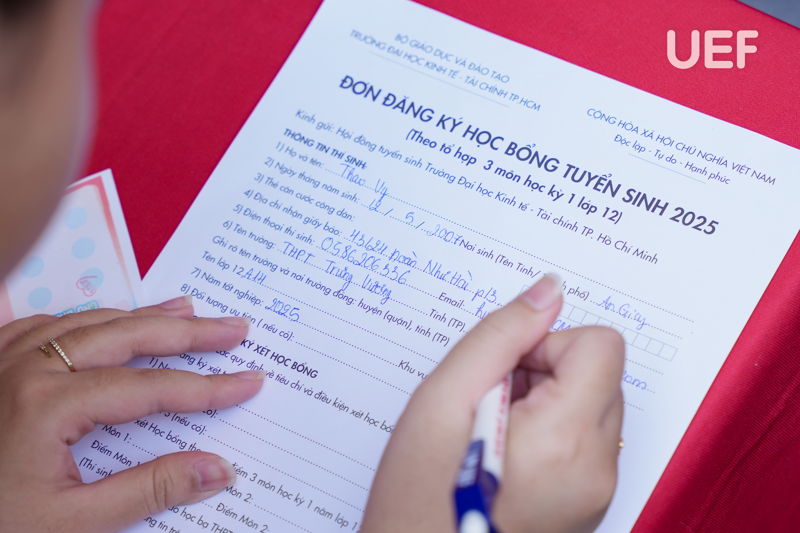 UEF
BỘ GIÁO DỤC VÀ ĐÀO TẠO
TRƯỜNG ĐẠI HỌC KINH TẾ - TÀI CHÍNH TP.HCM
CỘNG HÒA XÃ HỘI CHỦ NGHĨA VIỆT NAM
Độc lập - Tự do - Hạnh phúc
ĐƠN ĐĂNG KÝ HỌC BỔNG TUYỂN SINH 2025
(Theo tổ hợp 3 môn học kỳ 1 lớp 12)
Kính gửi: Hội đồng tuyển sinh Trường Đại học Kinh tế - Tài chính TP. Hồ Chí Minh
THÔNG TIN THÍ SINH:
1) Họ và tên: Thảo Vy
2) Ngày tháng năm sinh: 12 / 5 / 2007 Nơi sinh (Tên Tỉnh/ phố) An Giang
3) Thẻ căn cước công dân:
4) Địa chỉ nhận giấy báo: 43/24 Đoàn Như Hài p13.
5) Điện thoại thí sinh: 0986206336 Email:
6) Tên trường: THPT Trưng Vương
Ghi rõ tên trường và nơi trường đóng: huyện (quận), tỉnh (TP)
Tên lớp 12: A14 Tỉnh (TP)
7) Năm tốt nghiệp: 2025 Khu
8) Đối tượng ưu tiên ( nếu có):
KÝ XÉT HỌC BỔNG
các quy định về tiêu chí và điều kiện xét học
ký xét
(nếu có)
xét Học bổng
điểm 3 môn học kỳ 1 năm lớp
Môn 1: Môn 2:
Điểm Môn 1 Điểm Môn 2:
(Thí sinh
học bạ THPT